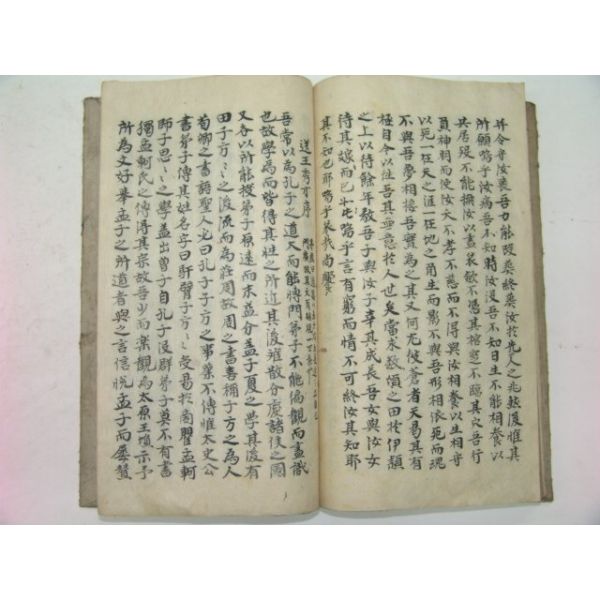 并令守汝喪吾力能改葬終葬汝於先人之兆然後惟其
所願嗚乎汝病吾不知時汝沒吾不知日生不能相養以
共居歿不能撫汝以盡哀斂不憑其棺窆不臨其穴吾行
負神祇而使汝夭不孝不慈而不得與汝相養以生相守
以死一在天之涯一在地之角生而影不與吾形相依死而魂
不與吾夢相接吾實爲之其又何尤彼蒼者天曷其有
極自今以往吾其無意於人世矣當求數頃之田於伊潁
之上以待餘年教吾子與汝子幸其成長吾女與汝女
待其嫁而已 嗚乎言有窮而情不可終汝其知耶
其不知也耶嗚乎哀哉尚饗
送王秀才序
吾常以爲孔子之道大而能博門弟子不能徧觀而盡識
也故學焉而皆得其性之所近其後離散分處諸侯之國
又各以所能授弟子原遠而末益分盖子夏之學其後有
田子方〻之後流而爲莊周故周之書喜稱子方之爲人
荀卿之書語聖人必曰孔子子方〻之事業不傳惟太史公
書弟子傳其姓名字曰馯臂子方〻〻受易於商瞿孟軻
師子思〻〻之學盖出曾子自孔子沒群弟子莫不有書
獨孟軻氏之傳得其宗故吾少而樂觀焉太原王塤示予
所爲文好擧孟子之所道者與之言信悅孟子而屢贊